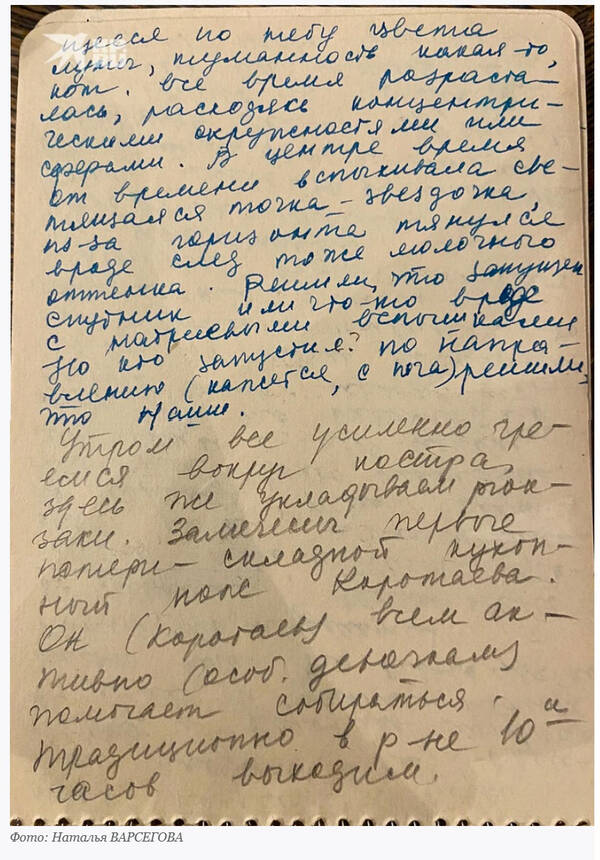 щееся по небу цвета
луны, туманность какая-то,
кот. все время разраста-
лась, расходясь концентри-
ческими окружностями или
сферами. В центре время
от времени вспыхивала све-
тящаяся точка - звездочка,
из-за горизонта тянулся
вроде след тоже молочного
оттенка. Решили, что запущен
спутник или что-то вроде
с натриевыми вспышками
Но кто запустил? по напра-
влению (кажется, с юга) решили,
что наши.
Утром все усиленно гре-
емся вокруг костра,
здесь же укладываем рюк-
заки. Замечены первые
потери - складной кухон-
ный нож Коротаева.
Он (Коротаев) всем ак-
тивно (особ. девочкам)
помогает собираться.
Традиционно в р-не 10и
часов выходим.
Фото: Наталья ВАРСЕГОВА